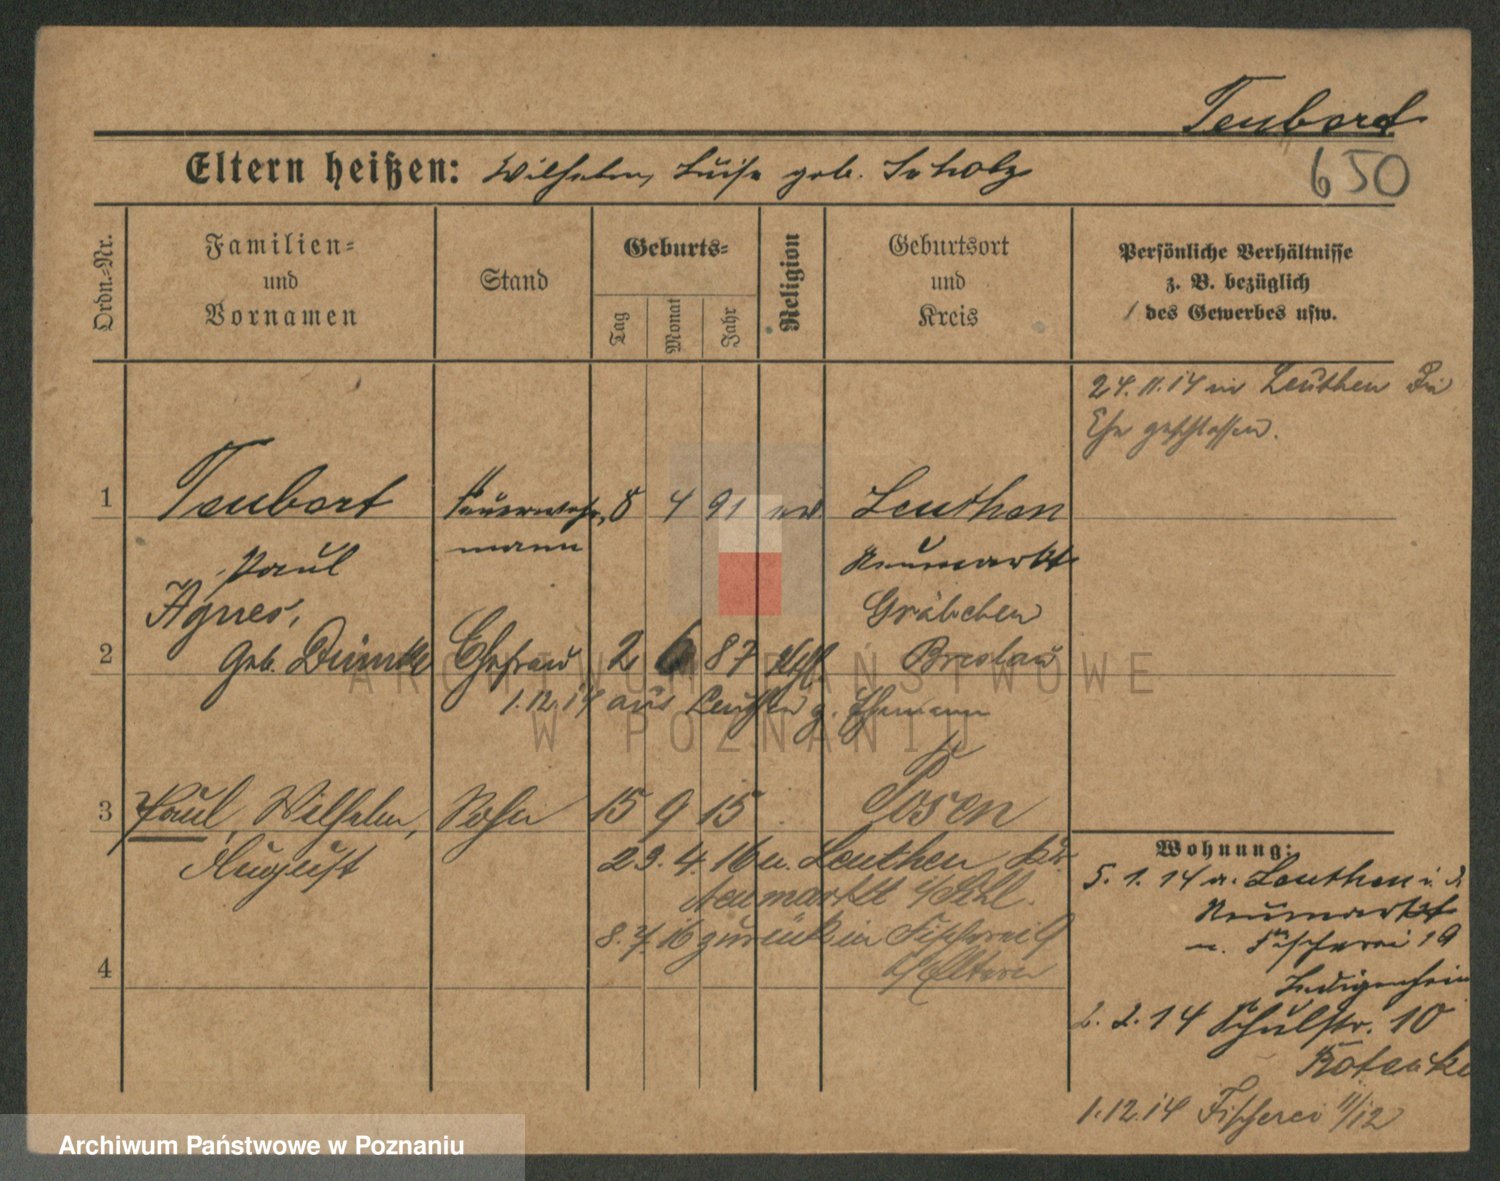 Teubert
650
Eltern heißen: Wilhelm, Luise geb. Scholz
Ordn.-Nr.
Familien-
und
Vornamen
Stand
Geburts-
Tag
Monat
Jahr
Religion
Geburtsort
und
Kreis
Persönliche Verhältnisse
z. B. bezüglich
des Gewerbes usw.
24.11.14 in Leuthen die
Ehe geschlossen.
1 Teubert Feuerwehr- 8 4 91 ev Leuthen
Paul mann Neumarkt
Agnes, Gräbchen
2 geb. Ehefrau 2 6 87 kth. Breslau
1.12.14 aus Leuthen z. Ehemann
3 Paul, Wilhelm, Sohn 15 9 15 Posen
August
23.4.16 n. Leuthen Kr.
Neumarkt i/Schl.
8.7.16 zurück in Fischerei 9
b/Eltern
4
Wohnung:
5.1.14 a. Leuthen
Neumarkt
n. Fischerei 19
Ledigenheim
2.2.14 Schulstr. 10
1.12.14 Fischerei 11/12
ARCHIWUM PAŃSTWOWE
W POZNANIU
Archiwum Państwowe w Poznaniu